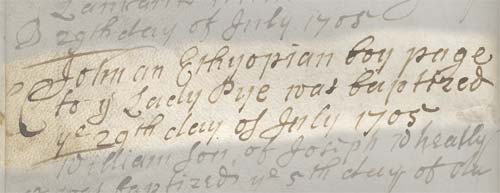 29th day of July 1705
John an Ethyopian boy page
to ye Lady Pye was baptized
ye 29th day of July 1705
William Son, of Joseph Wheally
was baptized ye 5th day of